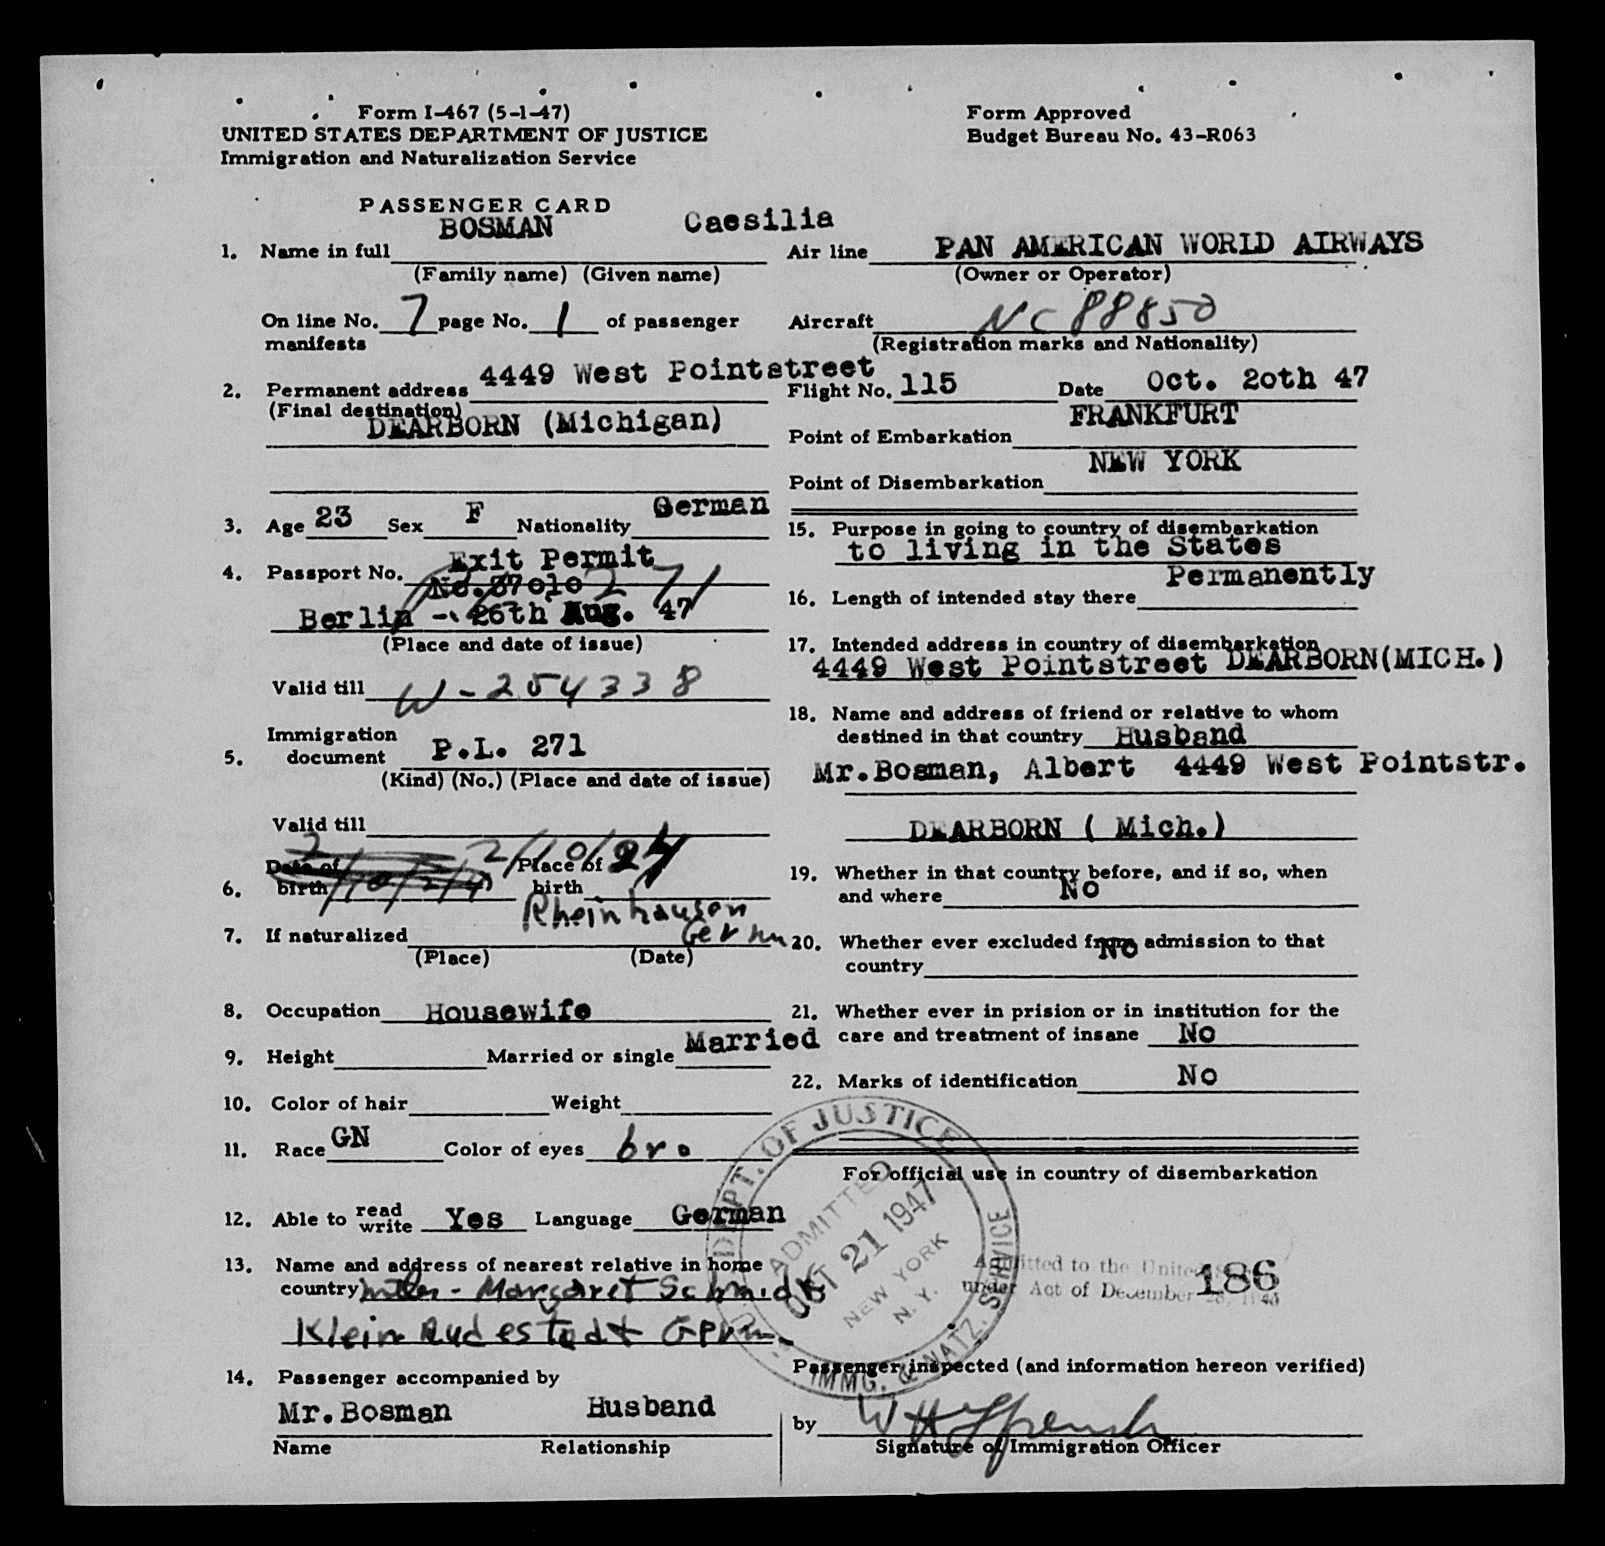 Form I-467 (5-1-47)
UNITED STATES DEPARTMENT OF JUSTICE
Immigration and Naturalization Service
Form Approved
Budget Bureau No. 43-R063
PASSENGER CARD
BOSMAN Caesilia
1. Name in full
(Family name) (Given name)
On line No. 7 page No. 1 of passenger
manifests
4449 West Pointstreet
2. Permanent address
(Final destination)
DEARBORN (Michigan)
3. Age 23 Sex F Nationality German
Exit Permit
4. Passport No.
No.
271
Berlin - 26th Aug. 47
(Place and date of issue)
Valid till W-254338
Immigration
5. document P.L. 271
(Kind) (No.) (Place and date of issue)
Valid till
2/10/24
Date of Place of
6. birth birth
Rheinhausen
7. If naturalized
(Place) (Date)
8. Occupation Housewife
9. Height Married or single Married
10. Color of hair Weight
11. Race GN Color of eyes bro
12. Able to read write Yes Language German
13. Name and address of nearest relative in home
country - Margaret Schmidt
Klein
14. Passenger accompanied by
Mr.Bosman Husband
Name Relationship
Air line PAN AMERICAN WORLD AIRWAYS
(Owner or Operator)
Aircraft NC 88850
(Registration marks and Nationality)
Flight No. 115 Date Oct. 20th 47
Point of Embarkation FRANKFURT
Point of Disembarkation NEW YORK
15. Purpose in going to country of disembarkation
to living in the States
Permanently
16. Length of intended stay there
17. Intended address in country of disembarkation
4449 West Pointstreet DEARBORN(MICH.)
18. Name and address of friend or relative to whom
destined in that country Husband
Mr.Bosman, Albert 4449 West Pointstr.
DEARBORN ( Mich.)
19. Whether in that country before, and if so, when
and where No
20. Whether ever excluded from admission to that
No
country
21. Whether ever in prision or in institution for the
care and treatment of insane No
22. Marks of identification No
For official use in country of disembarkation
U.S. DEPT. OF JUSTICE
ADMITTED
OCT 21 1947
NEW YORK
N. Y.
IMMG. & NATZ. SERVICE
Admitted to the United States
under Act of December 28, 1945
186
Passenger inspected (and information hereon verified)
by
Signature of Immigration Officer